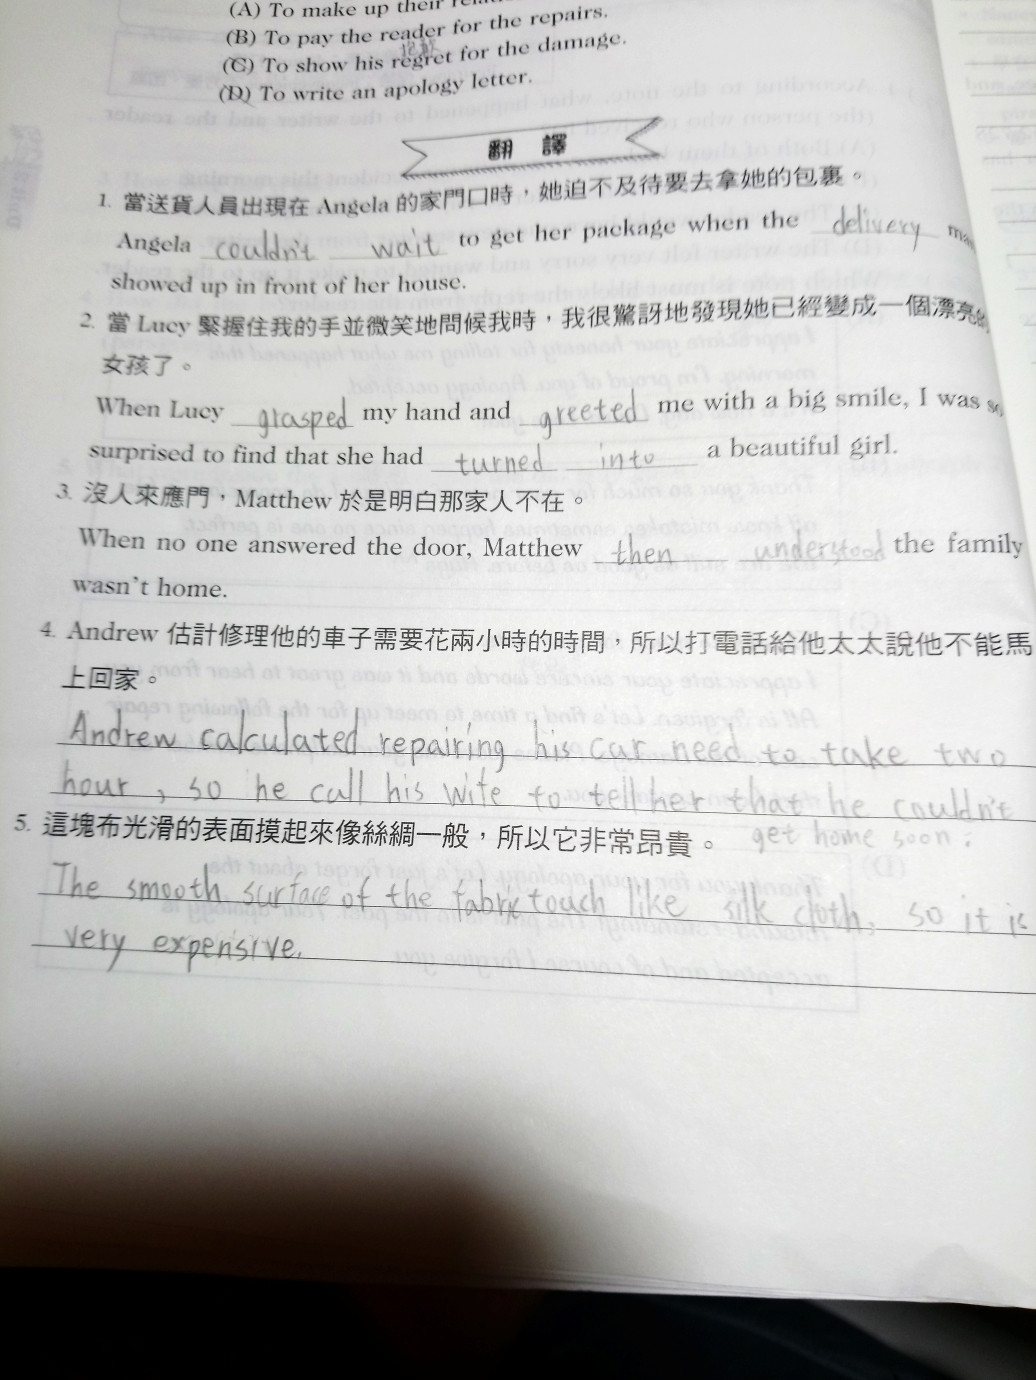 (A) To make up their
(B) To pay the reader for the repairs.
(C) To show his regret for the damage.
(D) To write an apology letter.
翻 譯
1. 當送貨人員出現在 Angela 的家門口時,她迫不及待要去拿她的包裹。
Angela couldn't wait to get her package when the delivery
showed up in front of her house.
2. 當 Lucy 緊握住我的手並微笑地問候我時,我很驚訝地發現她已經變成一個漂亮的
女孩了。
When Lucy grasped my hand and greeted me with a big smile, I was so
surprised to find that she had turned into a beautiful girl.
3. 沒人來應門,Matthew 於是明白那家人不在。
When no one answered the door, Matthew then understood the family
wasn't home.
4. Andrew 估計修理他的車子需要花兩小時的時間,所以打電話給他太太說他不能馬
上回家。
Andrew calculated repairing his car need to take two
hour, so he call his wife to tell her that he couldn't
get home soon.
5. 這塊布光滑的表面摸起來像絲綢一般,所以它非常昂貴。
The smooth surface of the fabric touch like silk cloth, so it is
very expensive.